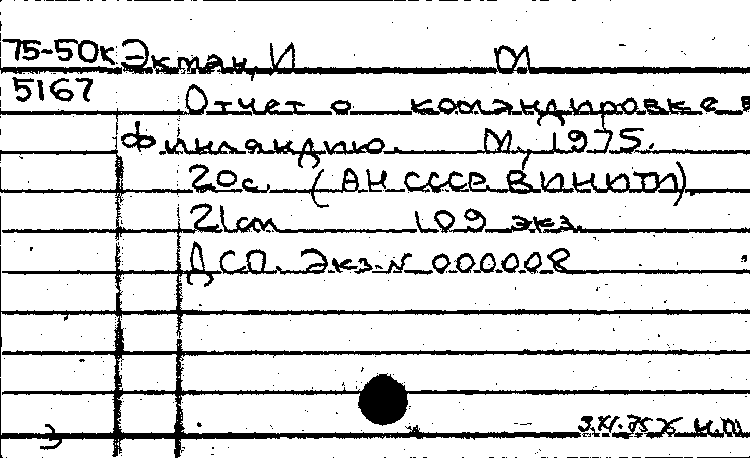 75-50к Эктан, И М
5167
Отчет о командировке в
Финляндию. М., 1975.
20с. (АН СССР ВИНИТИ).
21см 109 экз.
ДСП. Экз. № 000008
3